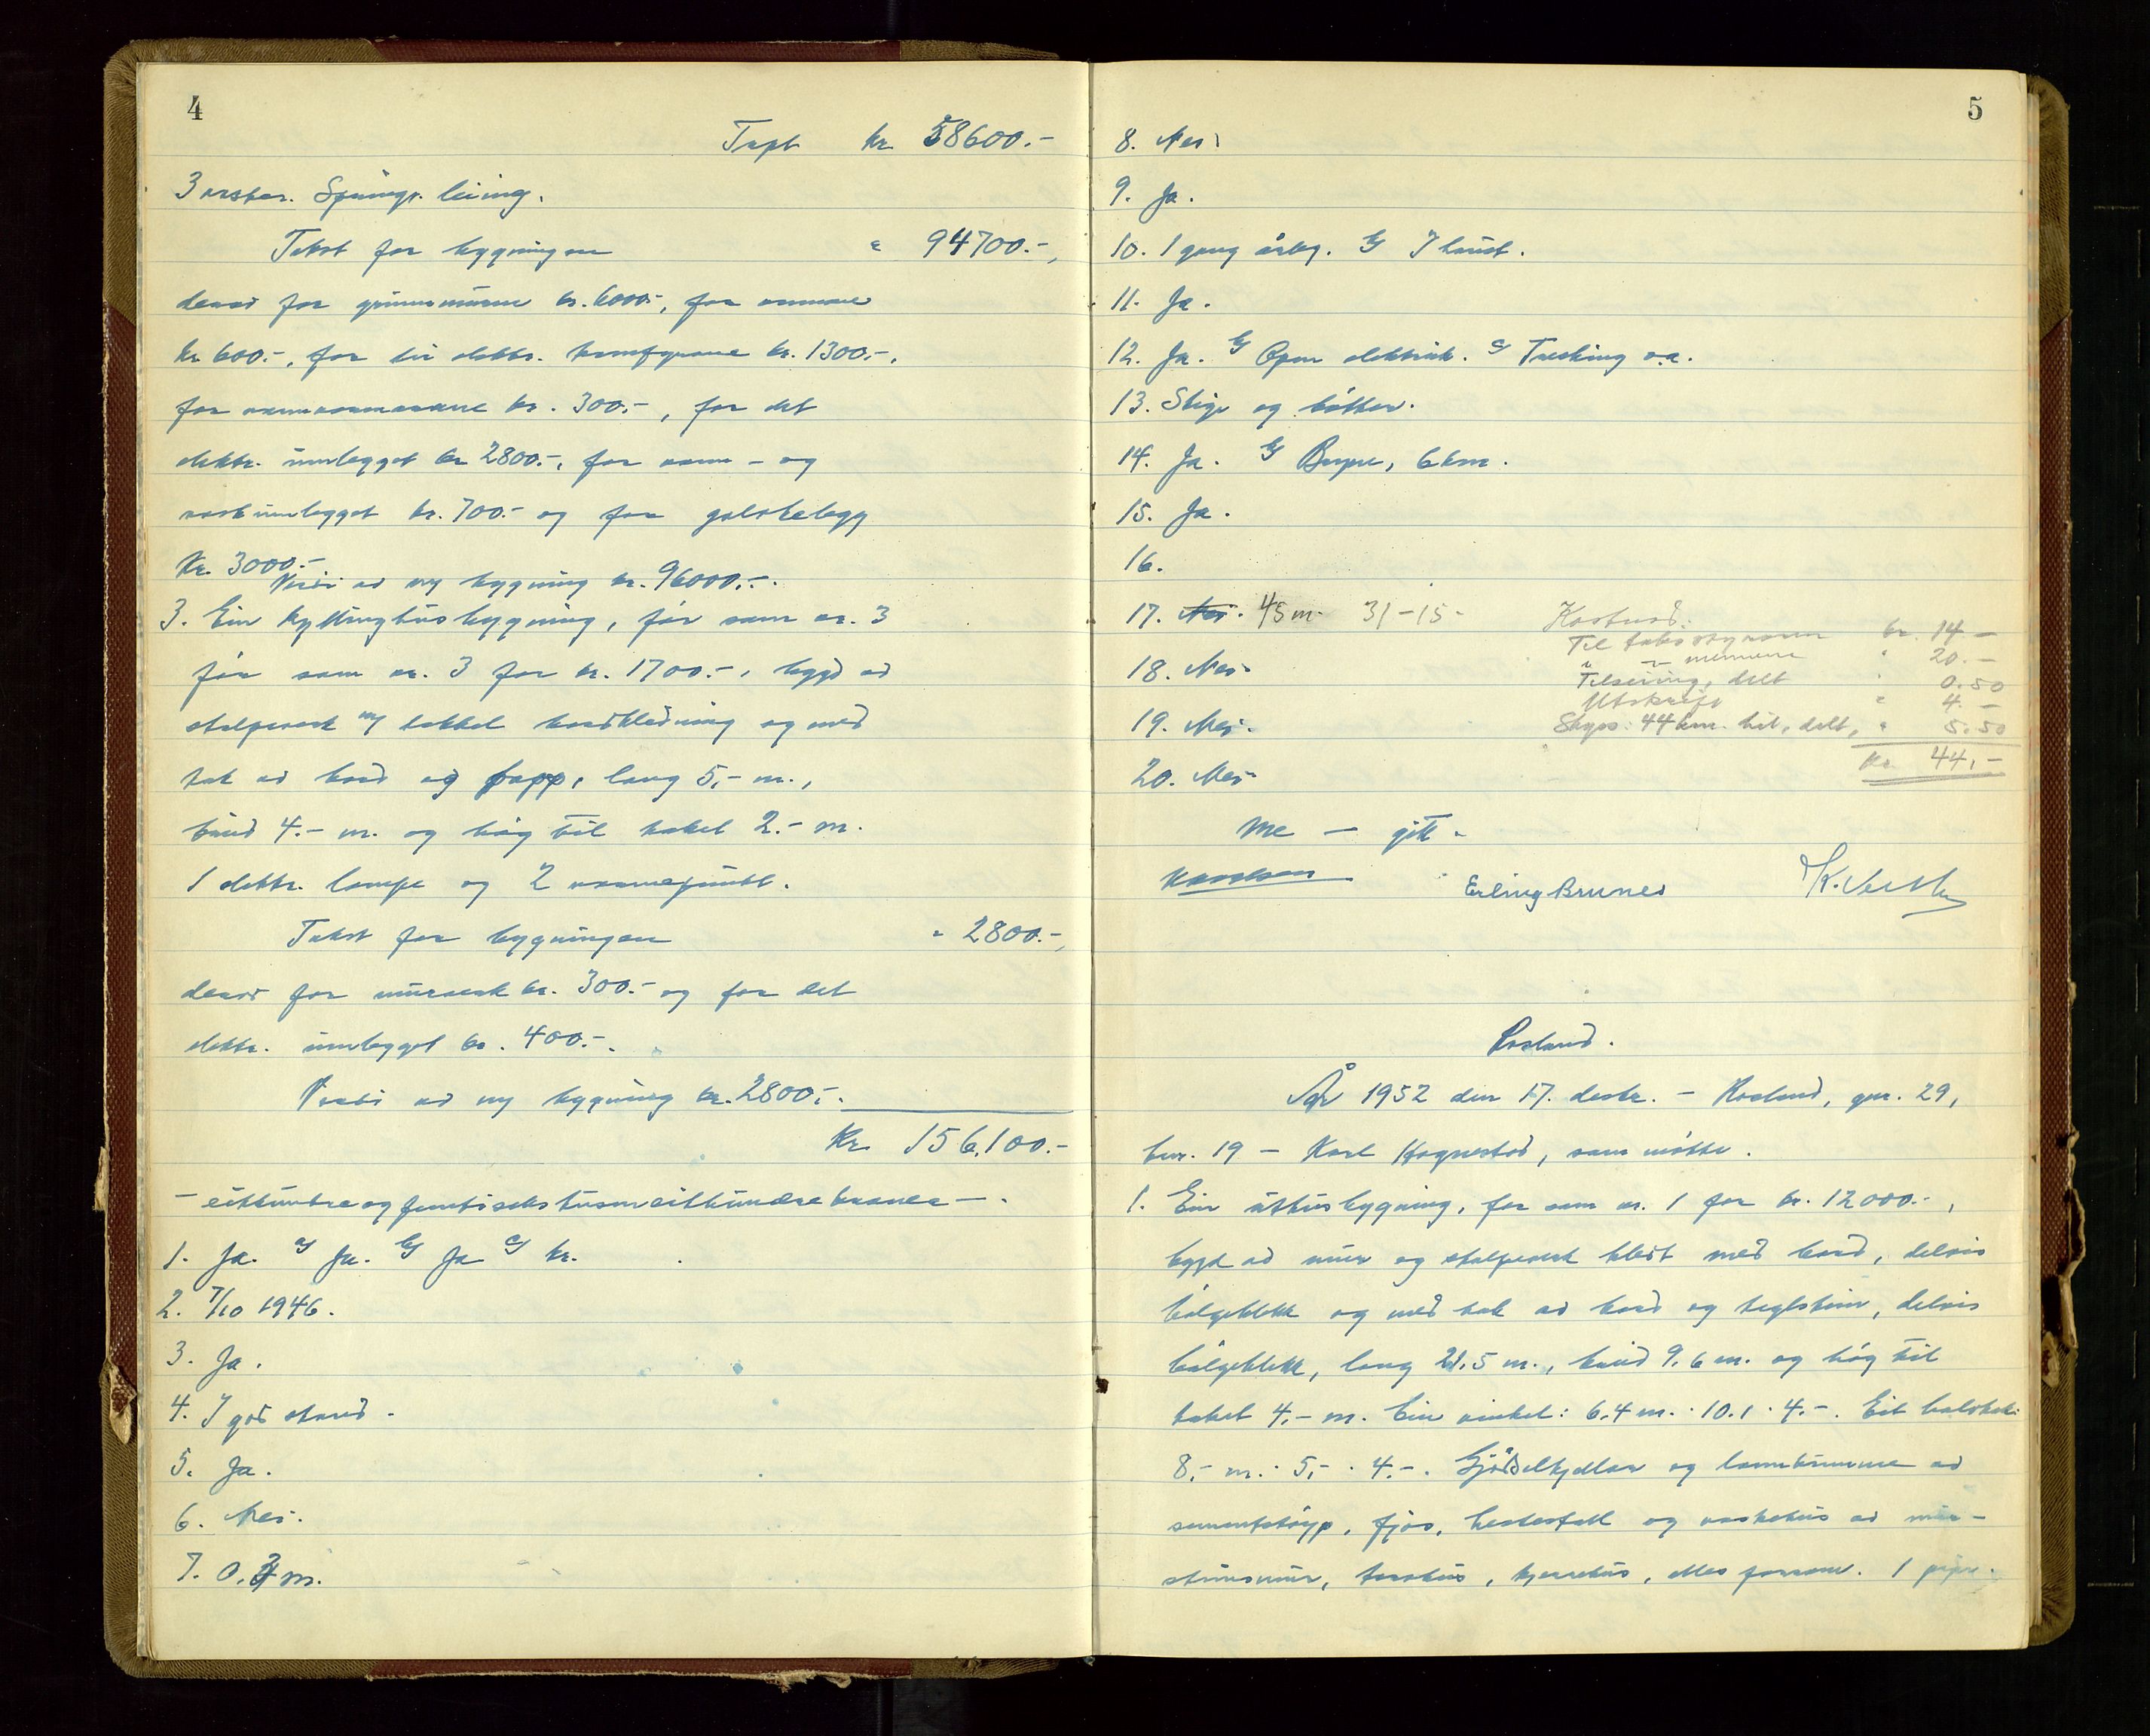 4
Takst kr. 58600.-
3 Spüngr. leiing.
Takst for bygningen " 94700.-,
derav for grunnmuren kr. 6000.-, for
kr 600.-, for ein elektr. komfyrane kr. 1300.-,
for kr. 300.-, for det
elektr. innlegget kr 2800.-, for vann- og
vaskinnlegget kr. 700.- og for golvbelegg
kr. 3000.-
Verdi av ny bygning kr. 96000.-.
3. Ein kyllinghusbygning, før som nr. 3
før som nr. 3 for kr. 1700.-, bygd av
stolpeverk m/ bordkledning og med
tak av bord og papp, lang 5,- m.,
breid 4.- m. og høg til taket 2.- m.
1 elektr. lampe og 2 varmepunkt.
Takst for bygningen " 2800.-,
derav for murverk kr. 300.- og for det
elektr. innlegget kr. 400.-.
Verdi av ny bygning kr. 2800.-.
Kr. 156.100.-
- eitthundreogfemtiseks tusen eitthundre kroner -.
1. Ja. Ja. Ja kr.
2. 7/10 1946.
3. Ja.
4. I god stand.
5. Ja.
6. Nei.
7. 0.3 m.
5
8. Nei
9. Ja.
10. 1 gang årleg. I haust.
11. Ja.
12. Ja. Open elektrisk. Tresking o.a.
13. Stige og bøtter.
14. Ja. Bryne, 6 km.
15. Ja.
16.
17. Nei. 45 m. 31-15-
18. Nei
19. Nei.
20. Nei
Kostnad:
Til takststyraren kr. 14.-
" - mennene " 20.-
Tilseiing, delt " 0.50
Utskrift " 4.-
Skyss: 44 km. bil, delt, " 5.50
kr. 44,-
Me - gitt.
Erling Brunes
Rosland.
År 1952 den 17. desbr. - Rosland, gnr. 29,
bnr. 19 - Karl Hognestad, som møtte.
1. Ein uthusbygning, før som nr. 1 for kr. 12000.-,
bygd av mur og stolpeverk kledt med bord, delvis
bølgeblekk og med tak av bord og teglstein, delvis
bølgeblekk, lang 21.5 m., breid 9.6 m. og høg til
taket 4,- m. Ein vinkel: 6.4 m. · 10.1 · 4.-. Eit halvtak:
8,- m. · 5,- · 4.-. Gjødselkjellar og landkumme av
sementstøyp, fjøs, hestestall og vaskehus av mur-
steinsmur, torvhus, kjerrehus, elles forrom. 1 pipe.